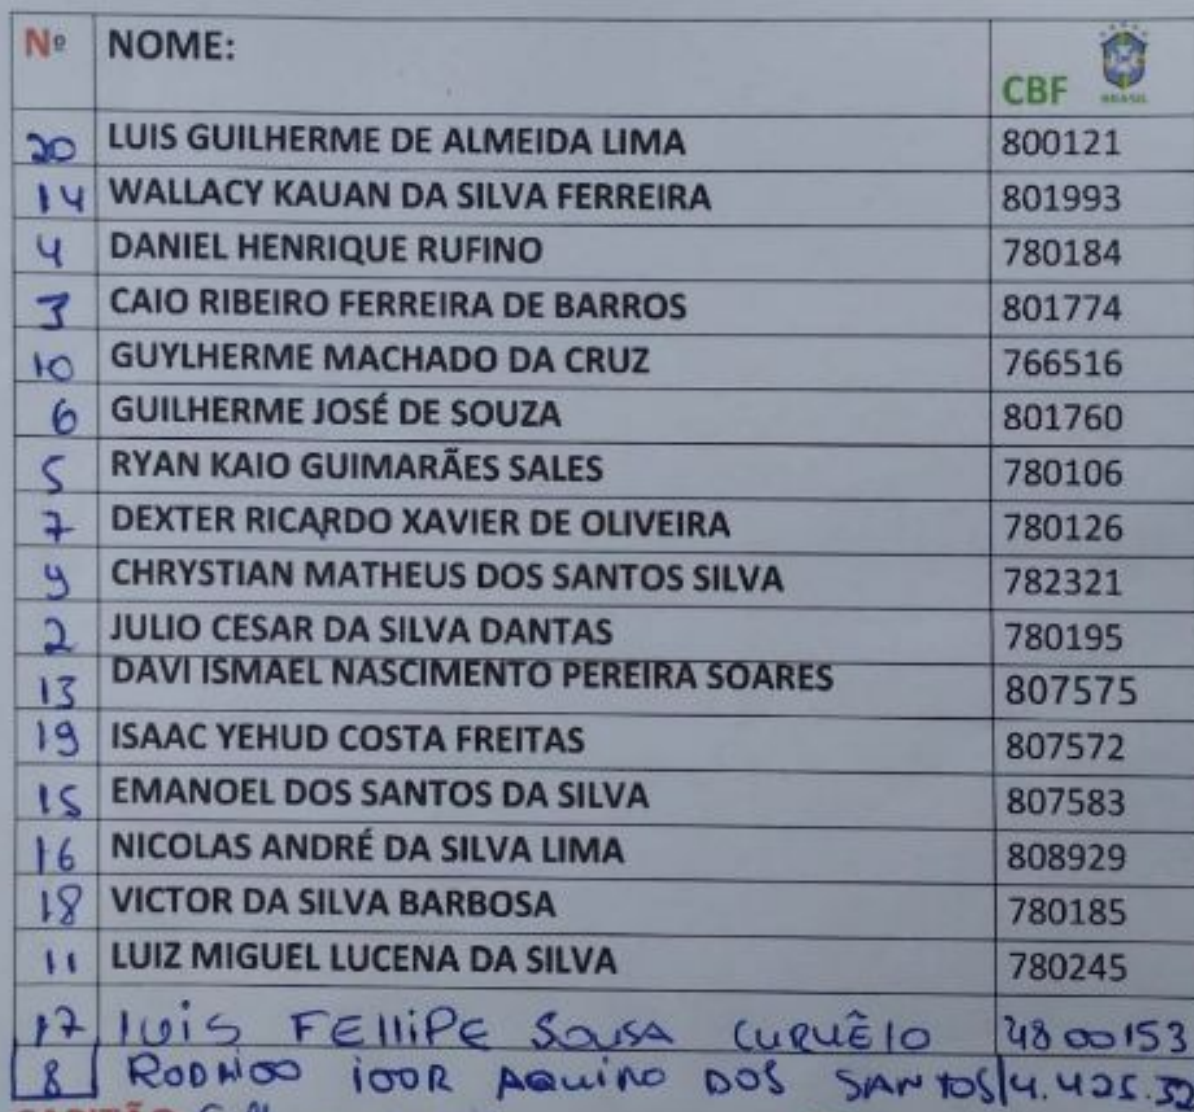 Nº NOME: CBF BRASIL
20 LUIS GUILHERME DE ALMEIDA LIMA 800121
14 WALLACY KAUAN DA SILVA FERREIRA 801993
4 DANIEL HENRIQUE RUFINO 780184
3 CAIO RIBEIRO FERREIRA DE BARROS 801774
10 GUYLHERME MACHADO DA CRUZ 766516
6 GUILHERME JOSÉ DE SOUZA 801760
5 RYAN KAIO GUIMARÃES SALES 780106
7 DEXTER RICARDO XAVIER DE OLIVEIRA 780126
9 CHRYSTIAN MATHEUS DOS SANTOS SILVA 782321
2 JULIO CESAR DA SILVA DANTAS 780195
13 DAVI ISMAEL NASCIMENTO PEREIRA SOARES 807575
19 ISAAC YEHUD COSTA FREITAS 807572
15 EMANOEL DOS SANTOS DA SILVA 807583
16 NICOLAS ANDRÉ DA SILVA LIMA 808929
18 VICTOR DA SILVA BARBOSA 780185
11 LUIZ MIGUEL LUCENA DA SILVA 780245
17 luis FEllIPE SOUSA 4800153
8 RODRIGO IGOR AQUINO DOS SANTOS 4.425.32